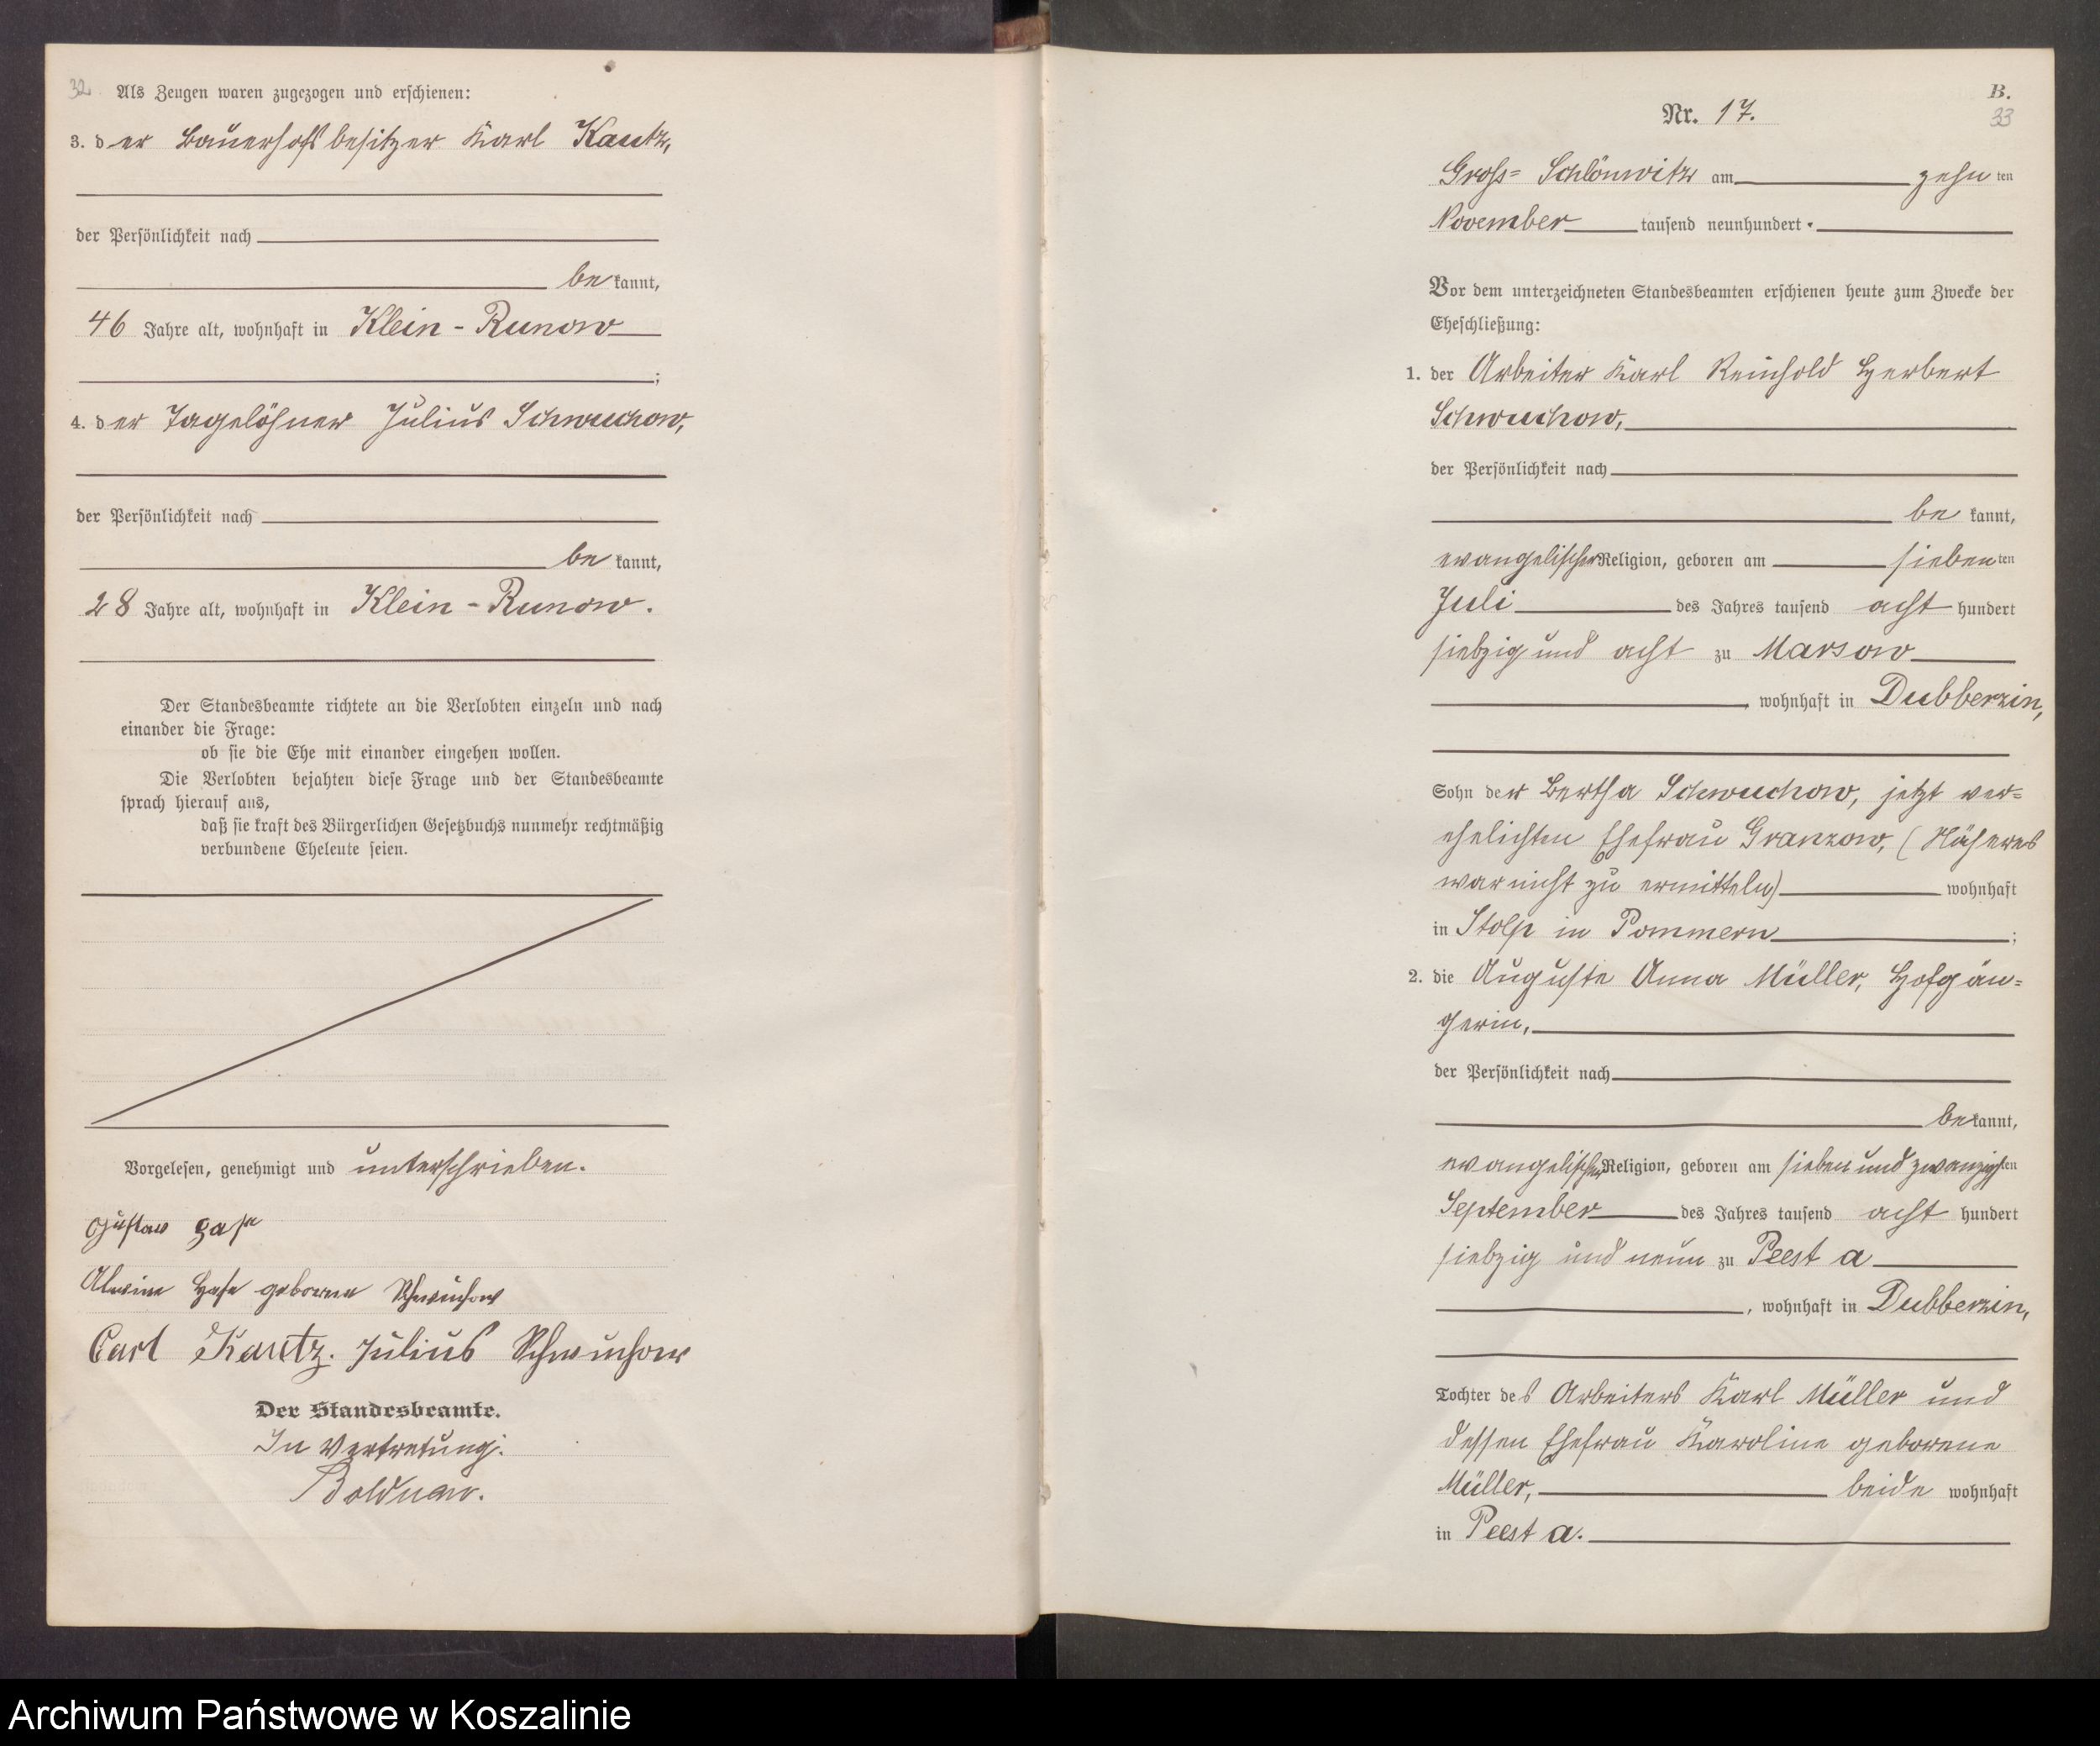 32.
Als Zeugen waren zugezogen und erschienen:
3. der Bauerhofsbesitzer Karl Kautz,
der Persönlichkeit nach
bekannt,
46 Jahre alt, wohnhaft in Klein-Runow
;
4. der Tagelöhner Julius Schwuchow,
der Persönlichkeit nach
bekannt,
28 Jahre alt, wohnhaft in Klein-Runow.
Der Standesbeamte richtete an die Verlobten einzeln und nach
einander die Frage:
ob sie die Ehe mit einander eingehen wollen.
Die Verlobten bejahten diese Frage und der Standesbeamte
sprach hierauf aus,
daß sie kraft des Bürgerlichen Gesetzbuchs nunmehr rechtmäßig
verbundene Eheleute seien.
Vorgelesen, genehmigt und unterschrieben.
Gustav Hase
Alwine Hase geborene Schwuchow
Carl Kautz. Julius Schwuchow
Der Standesbeamte.
In Vertretung:
Bolduan.
B.
33
Nr. 17.
Gross= Schlönwitz am zehnten
November tausend neunhundert
Vor dem unterzeichneten Standesbeamten erschienen heute zum Zwecke der
Eheschließung:
1. der Arbeiter Karl Reinhold Herbert
Schwuchow,
der Persönlichkeit nach
bekannt,
evangelischer Religion, geboren am siebenten
Juli des Jahres tausend acht hundert
siebzig und acht zu Marsow
, wohnhaft in Dubberzin,
Sohn der Bertha Schwuchow, jetzt ver=
ehelichten Ehefrau Granzow, (Näheres
war nicht zu ermitteln) wohnhaft
in Stolp in Pommern ;
2. die Auguste Anna Müller, Hofgän=
gerin,
der Persönlichkeit nach
bekannt,
evangelischer Religion, geboren am sieben und zwanzigsten
September des Jahres tausend acht hundert
siebzig und neun zu Peest a
, wohnhaft in Dubberzin,
Tochter des Arbeiters Karl Müller und
dessen Ehefrau Karoline geborene
Müller, beide wohnhaft
in Peest a.
Archiwum Państwowe w Koszalinie